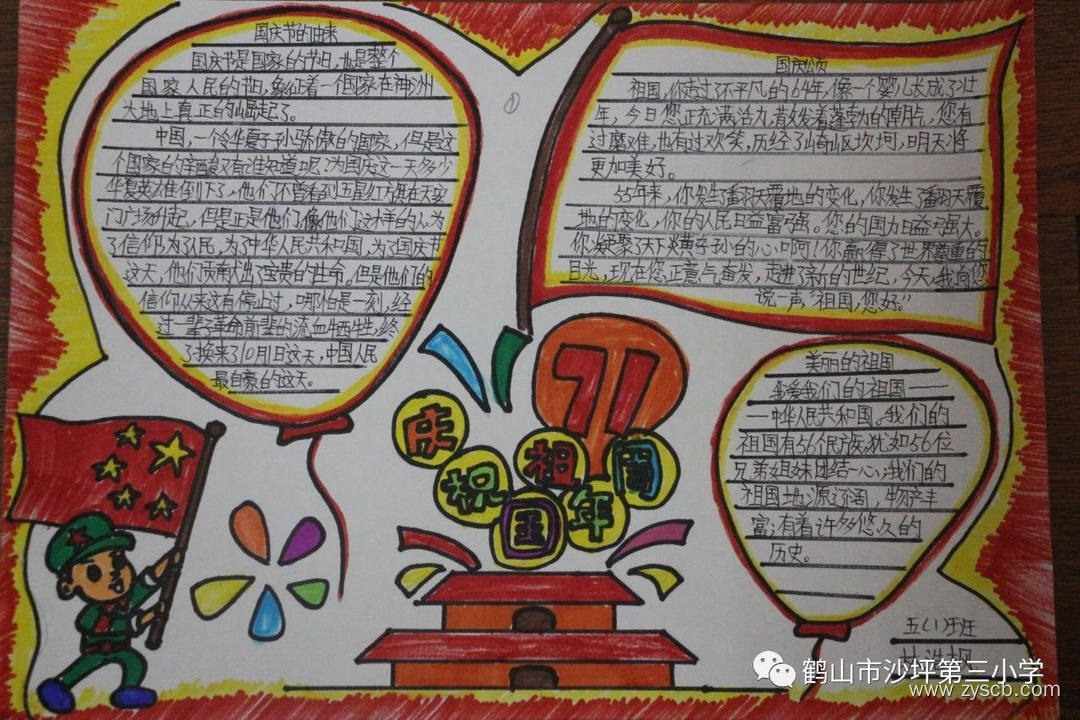 国庆节的由来
国庆节是国家的节日,也是整个
国家人民的节日,象征着一个国家在神洲
大地上真正的崛起了。
中国,一个令华夏子孙骄傲的国家,但是这
个国家的辛酸又有谁知道呢?为国庆这一天多少
华夏英雄倒下了,他们不曾看到五星红旗在天安
门广场升起,但是正是他们,像他们这样的人,为
了信仰,为了人民,为了中华人民共和国,为了国庆节
这天,他们贡献出了宝贵的生命。但是他们的
信仰从来没有停止过,哪怕是一刻,经
过一辈子革命前辈的流血牺牲,终
了换来了10月1日这天,中国人民
最自豪的这天。
①
国庆颂
祖国,你走过了不平凡的64年,像一个婴儿长成了壮
年,今日您正充满活力,昔发着蓬勃的朝气,您有
过磨难,也有过欢笑,历经了崎岖坎坷,明天将
更加美好。
55年来,你发生了翻天覆地的变化,你发生了翻天覆
地的变化,你的人民日益富强。您的国力日益强大。
你凝聚了天下炎黄子孙的心,啊!你赢得了世界尊重的
目光,现在您正意气奋发,走进了新的世纪,今天,我向您
说一声"祖国,您好。"
71
庆祝祖国
周年
美丽的祖国
我爱我们的祖国——
—中华人民共和国。我们的
祖国有56个民族,犹如56位
兄弟姐妹团结一心;我们的
祖国地源辽阔,物产丰
富;有着许多悠久的
历史。
五(1)班
鹤山市沙坪第三小学
www.zyscb.com